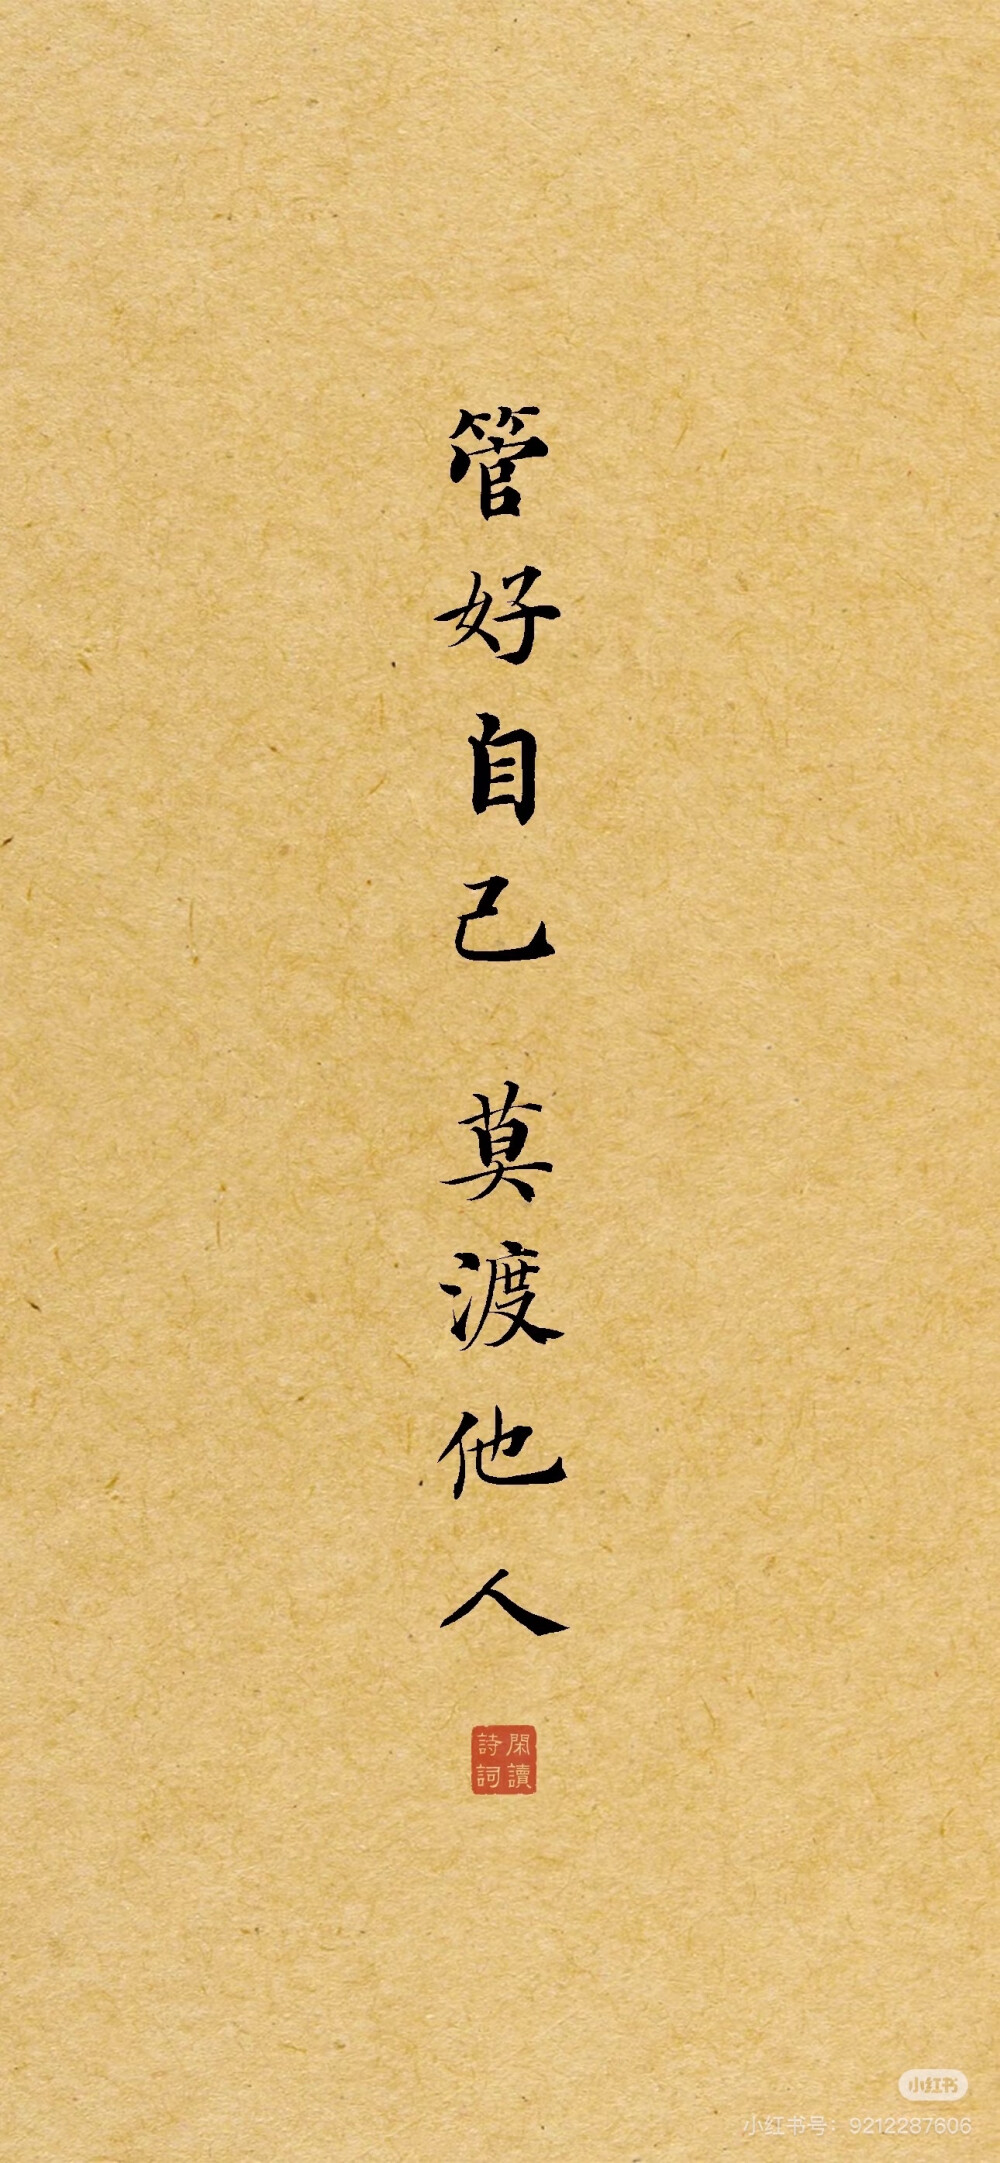 管好自己 莫渡他人
閑讀
詩詞
小红书
小红书号：9212287606